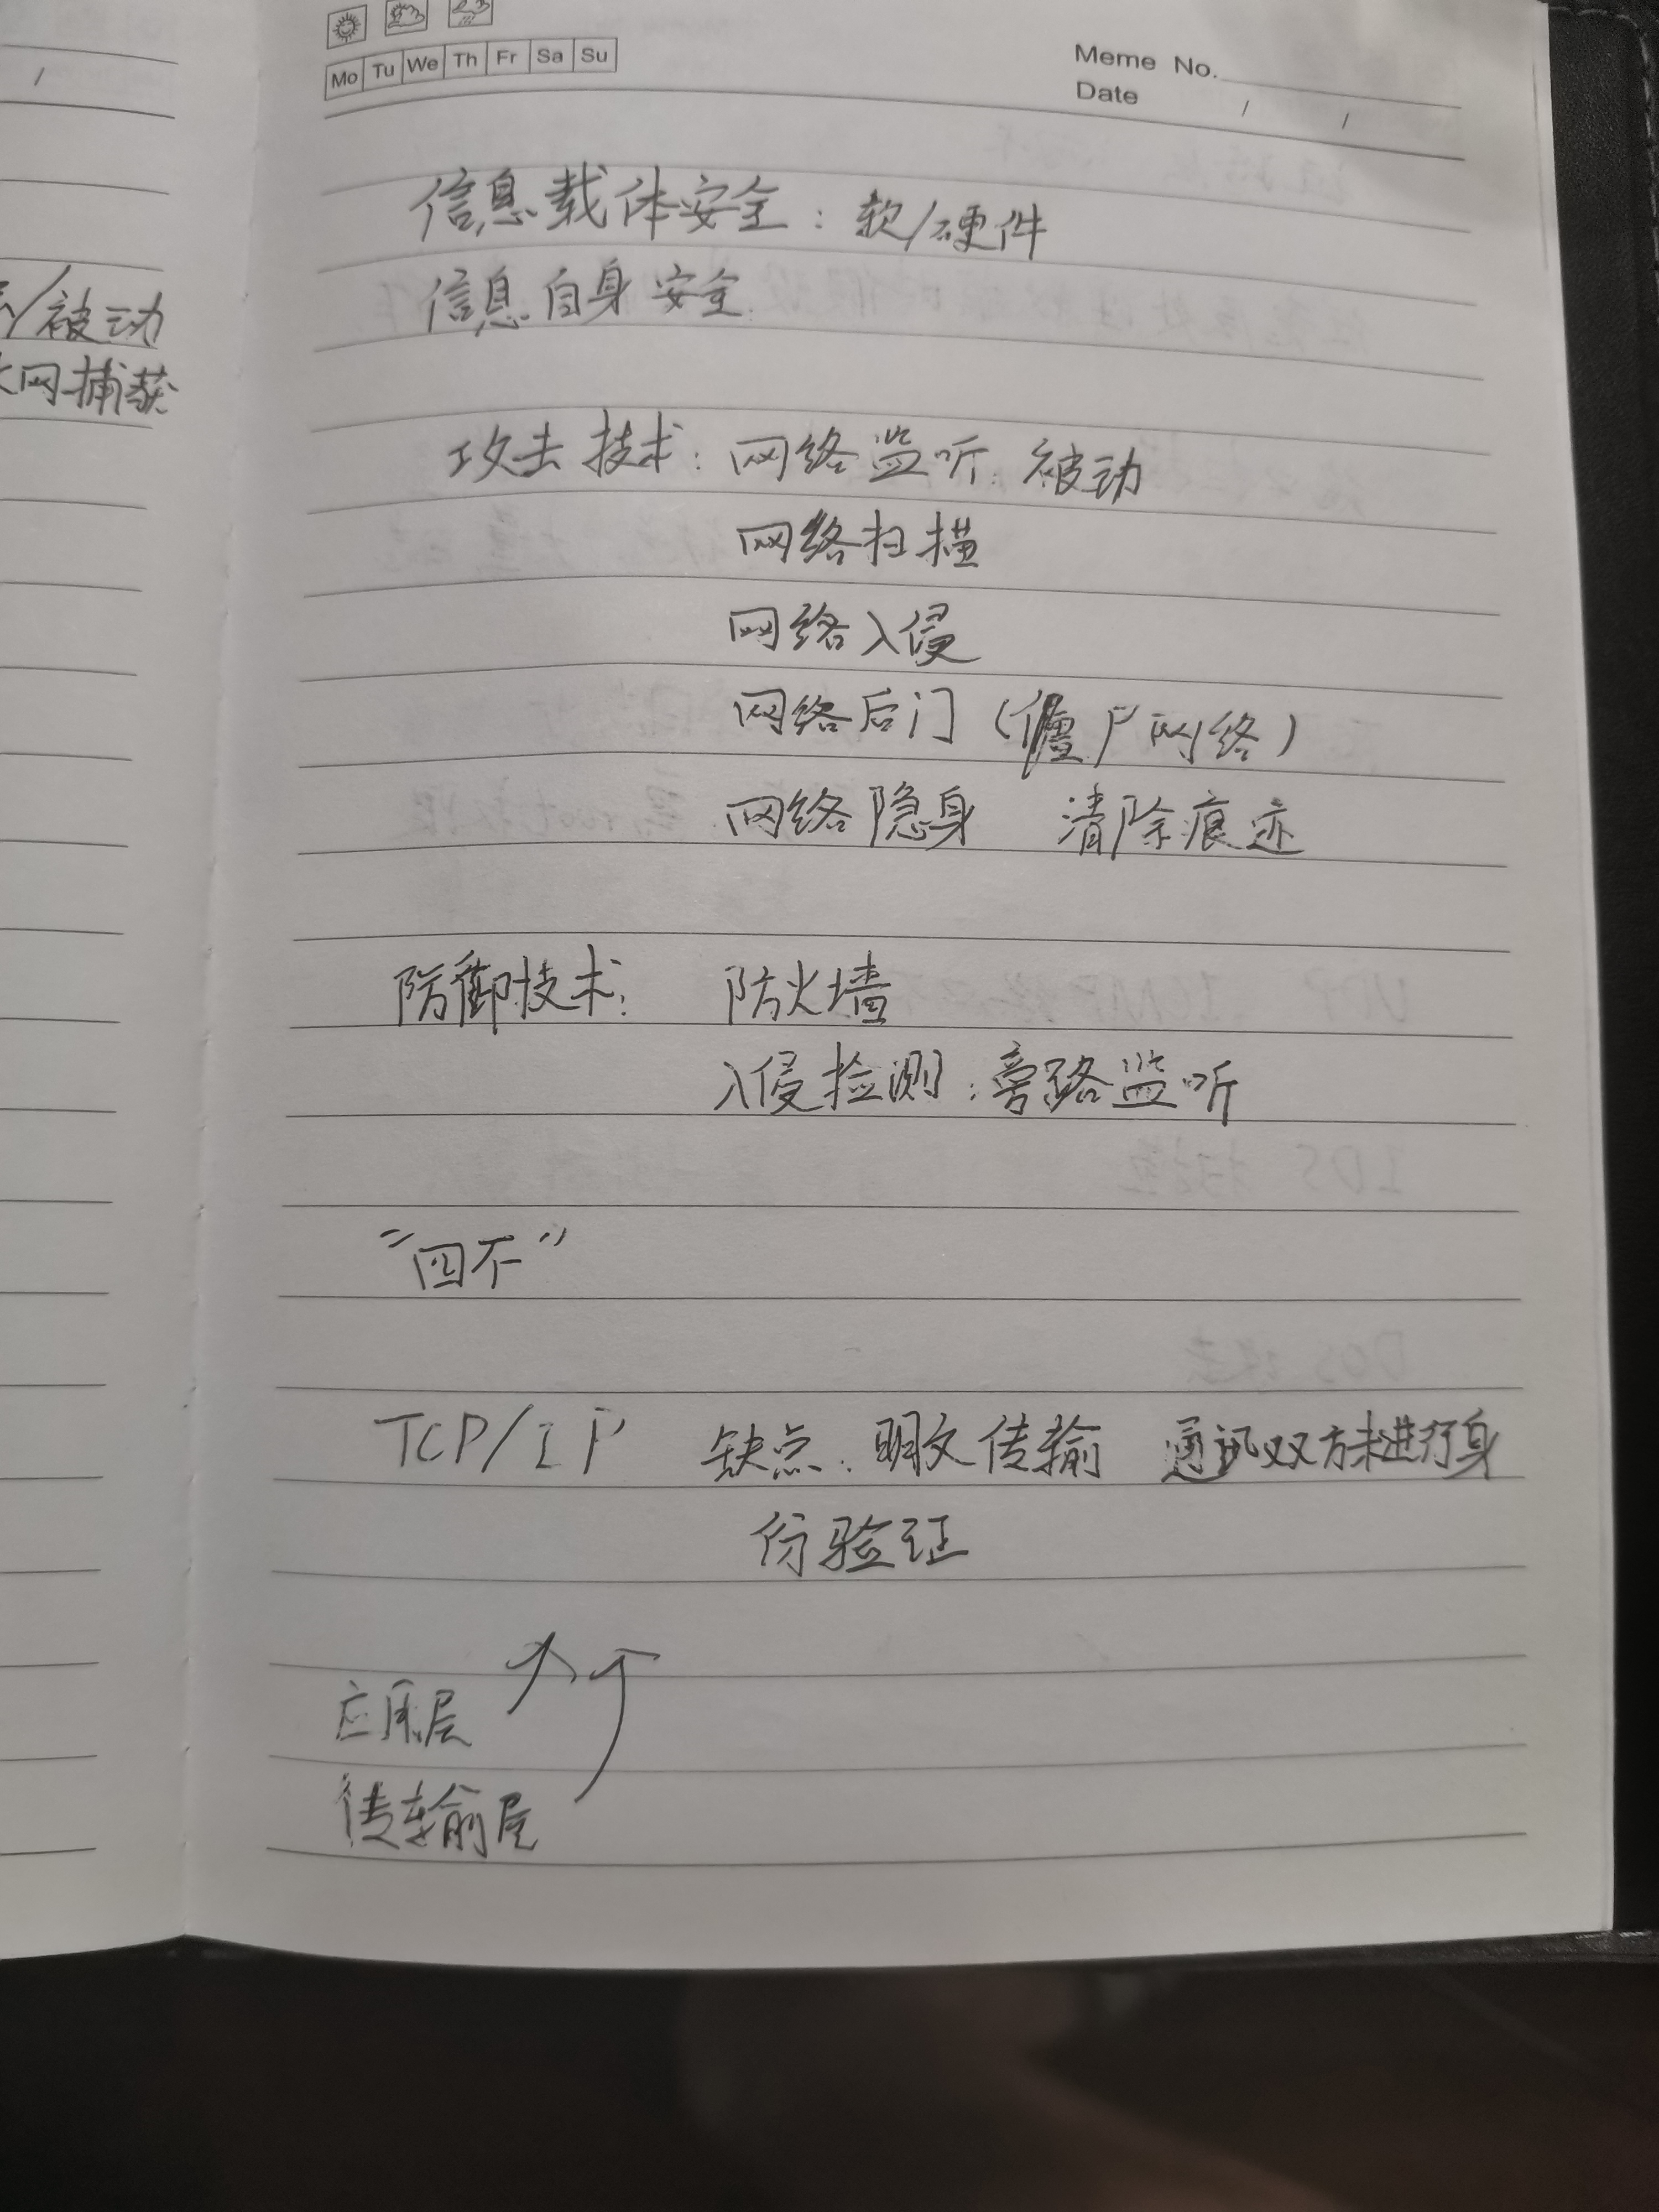 Mo Tu We Th Fr Sa Su
Meme No.
Date / /
/
/被动
网捕获
信息载体安全：软/硬件
信息自身安全
攻击技术：网络监听：被动
网络扫描
网络入侵
网络后门（僵尸网络）
网络隐身 清除痕迹
防御技术： 防火墙
入侵检测：旁路监听
“四不”
TCP/IP 缺点：明文传输 通讯双方未进行身
份验证
应用层
传输层